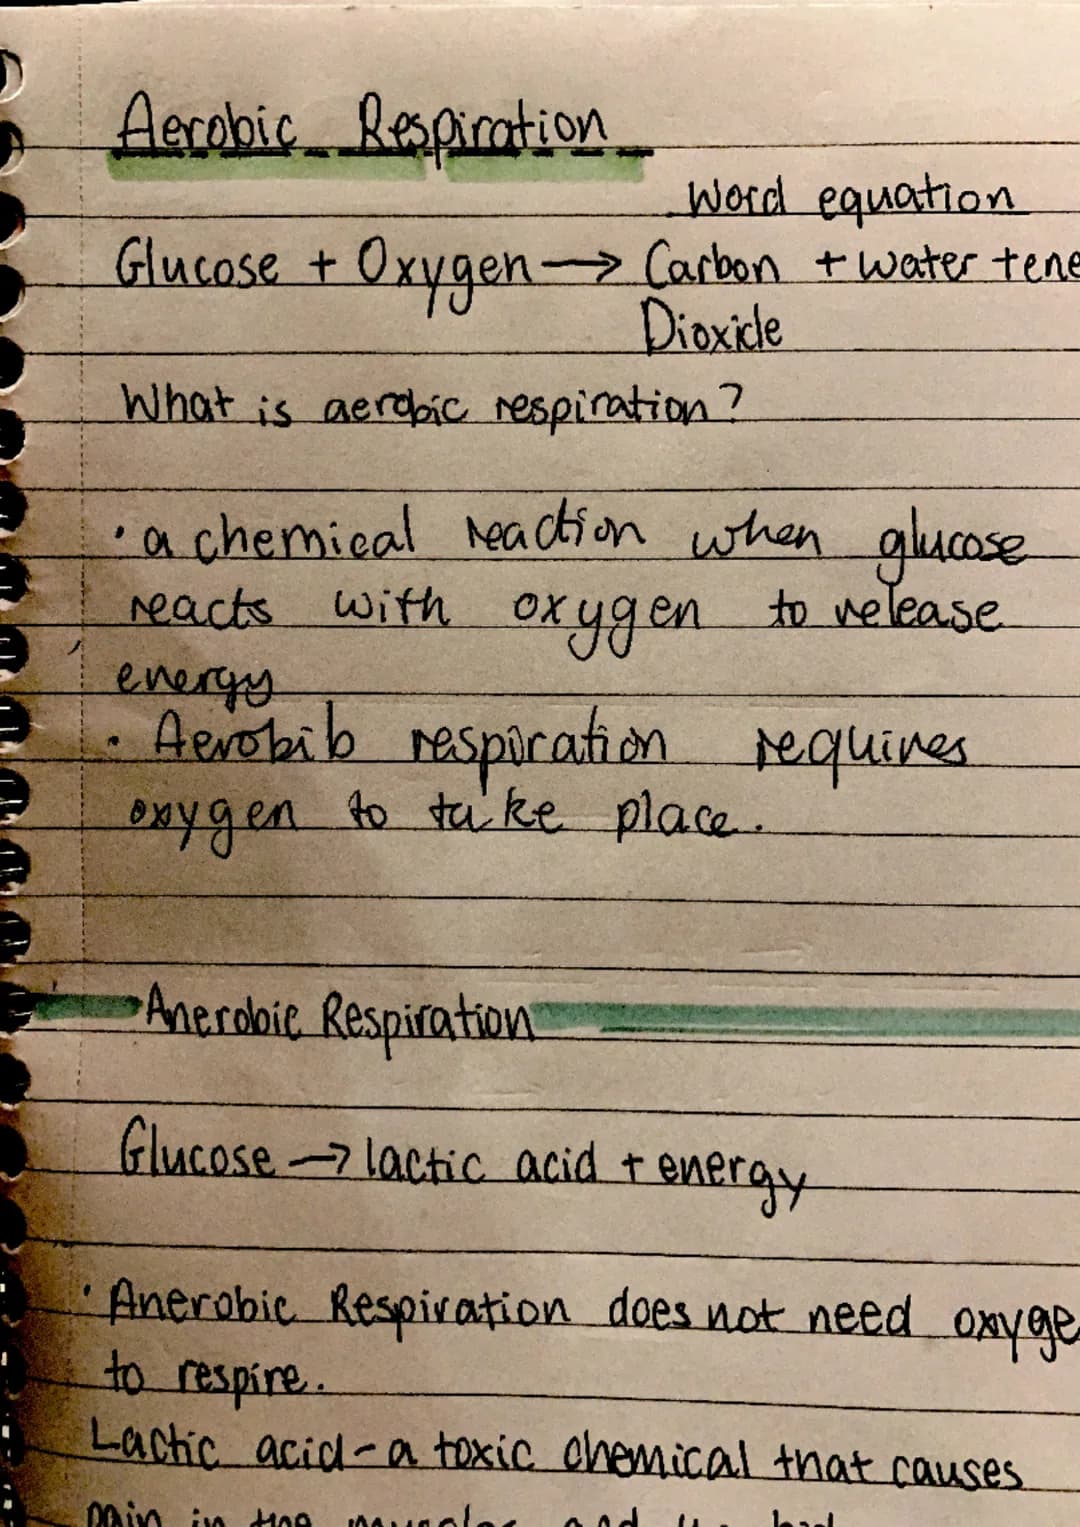 Aerobic Respiration
Word equation
Glucose + Oxygen → Carbon + water + ene
Dioxide
What is aerobic respiration?
· a chemical reaction when glucose
reacts with oxygen to release
energy
· Aerobib respiration requires
oxygen to take place.
Anerobic Respiration
Glucose → lactic acid + energy
· Anerobic Respiration does not need oxyge
to respire.
Lactic acid - a toxic chemical that causes
pain in the muscles and